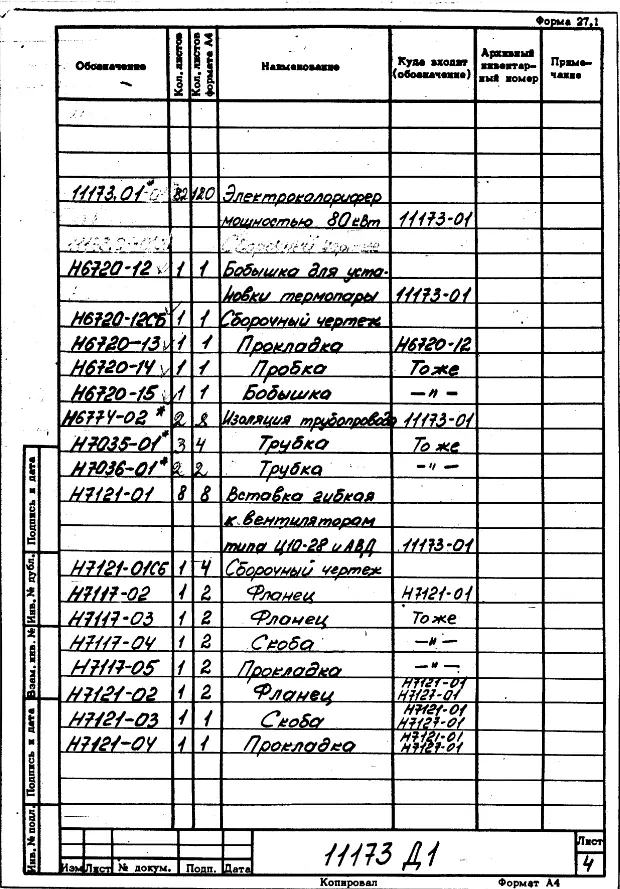 Форма 27,1
Обозначение Кол. листов Кол. листов формата А4 Наименование Куда входит (обозначение) Архивный инвентарный номер Примечание
11173.01* 82 120 Электрокалорифер
мощностью 80 квт 11173-01
Сборочный
Н6720-12 1 1 Бобышка для уста-
новки термопары 11173-01
Н6720-12СБ 1 1 Сборочный чертеж
Н6720-13 1 1 Прокладка Н6720-12
Н6720-14 1 1 Пробка То же
Н6720-15 1 1 Бобышка —"—
Н6774-02* 2 8 Изоляция трубопровода 11173-01
Н7035-01* 3 4 Трубка То же
Н7036-01* 2 2 Трубка —"—
Н7121-01 8 8 Вставка гибкая
к вентиляторам
типа Ц10-28 и АВД 11173-01
Н7121-01СБ 1 4 Сборочный чертеж
Н7117-02 1 2 Фланец Н7121-01
Н7117-03 1 2 Фланец То же
Н7117-04 1 2 Скоба —"—
Н7117-05 1 2 Прокладка —"—
Н7121-02 1 2 Фланец Н7121-01
Н7127-01
Н7121-03 1 1 Скоба Н7121-01
Н7127-01
Н7121-04 1 1 Прокладка Н7121-01
Н7127-01
Подпись и дата
Инв. № дубл.
Взам. инв. №
Подпись и дата
Инв. № подл.
Изм Лист № докум. Подп. Дата
11173 Д1
Лист
4
Копировал Формат А4